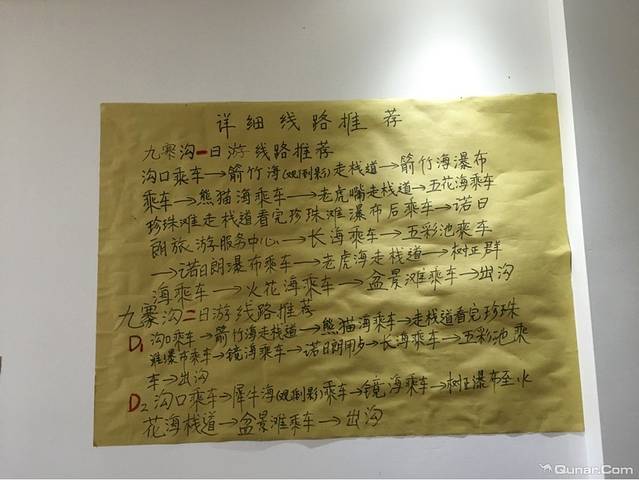 详细线路推荐
九寨沟一日游线路推荐
沟口乘车→箭竹海(观倒影)走栈道→箭竹海瀑布
乘车→熊猫海乘车→老虎嘴走栈道→五花海乘车
珍珠滩走栈道看完珍珠滩瀑布后乘车→诺日
朗旅游服务中心→长海乘车→五彩池乘车
→诺日朗瀑布乘车→老虎海走栈道→树正群
海乘车→火花海乘车→盆景滩乘车→出沟
九寨沟二日游线路推荐
D1 沟口乘车→箭竹海走栈道→熊猫海乘车→走栈道看完珍珠
滩瀑布乘车→镜海乘车→诺日朗用歺→长海乘车→五彩池乘
车→出沟
D2 沟口乘车→犀牛海(观倒影)乘车→镜海乘车→树正瀑布至火
花海栈道→盆景滩乘车→出沟
Qunar.Com